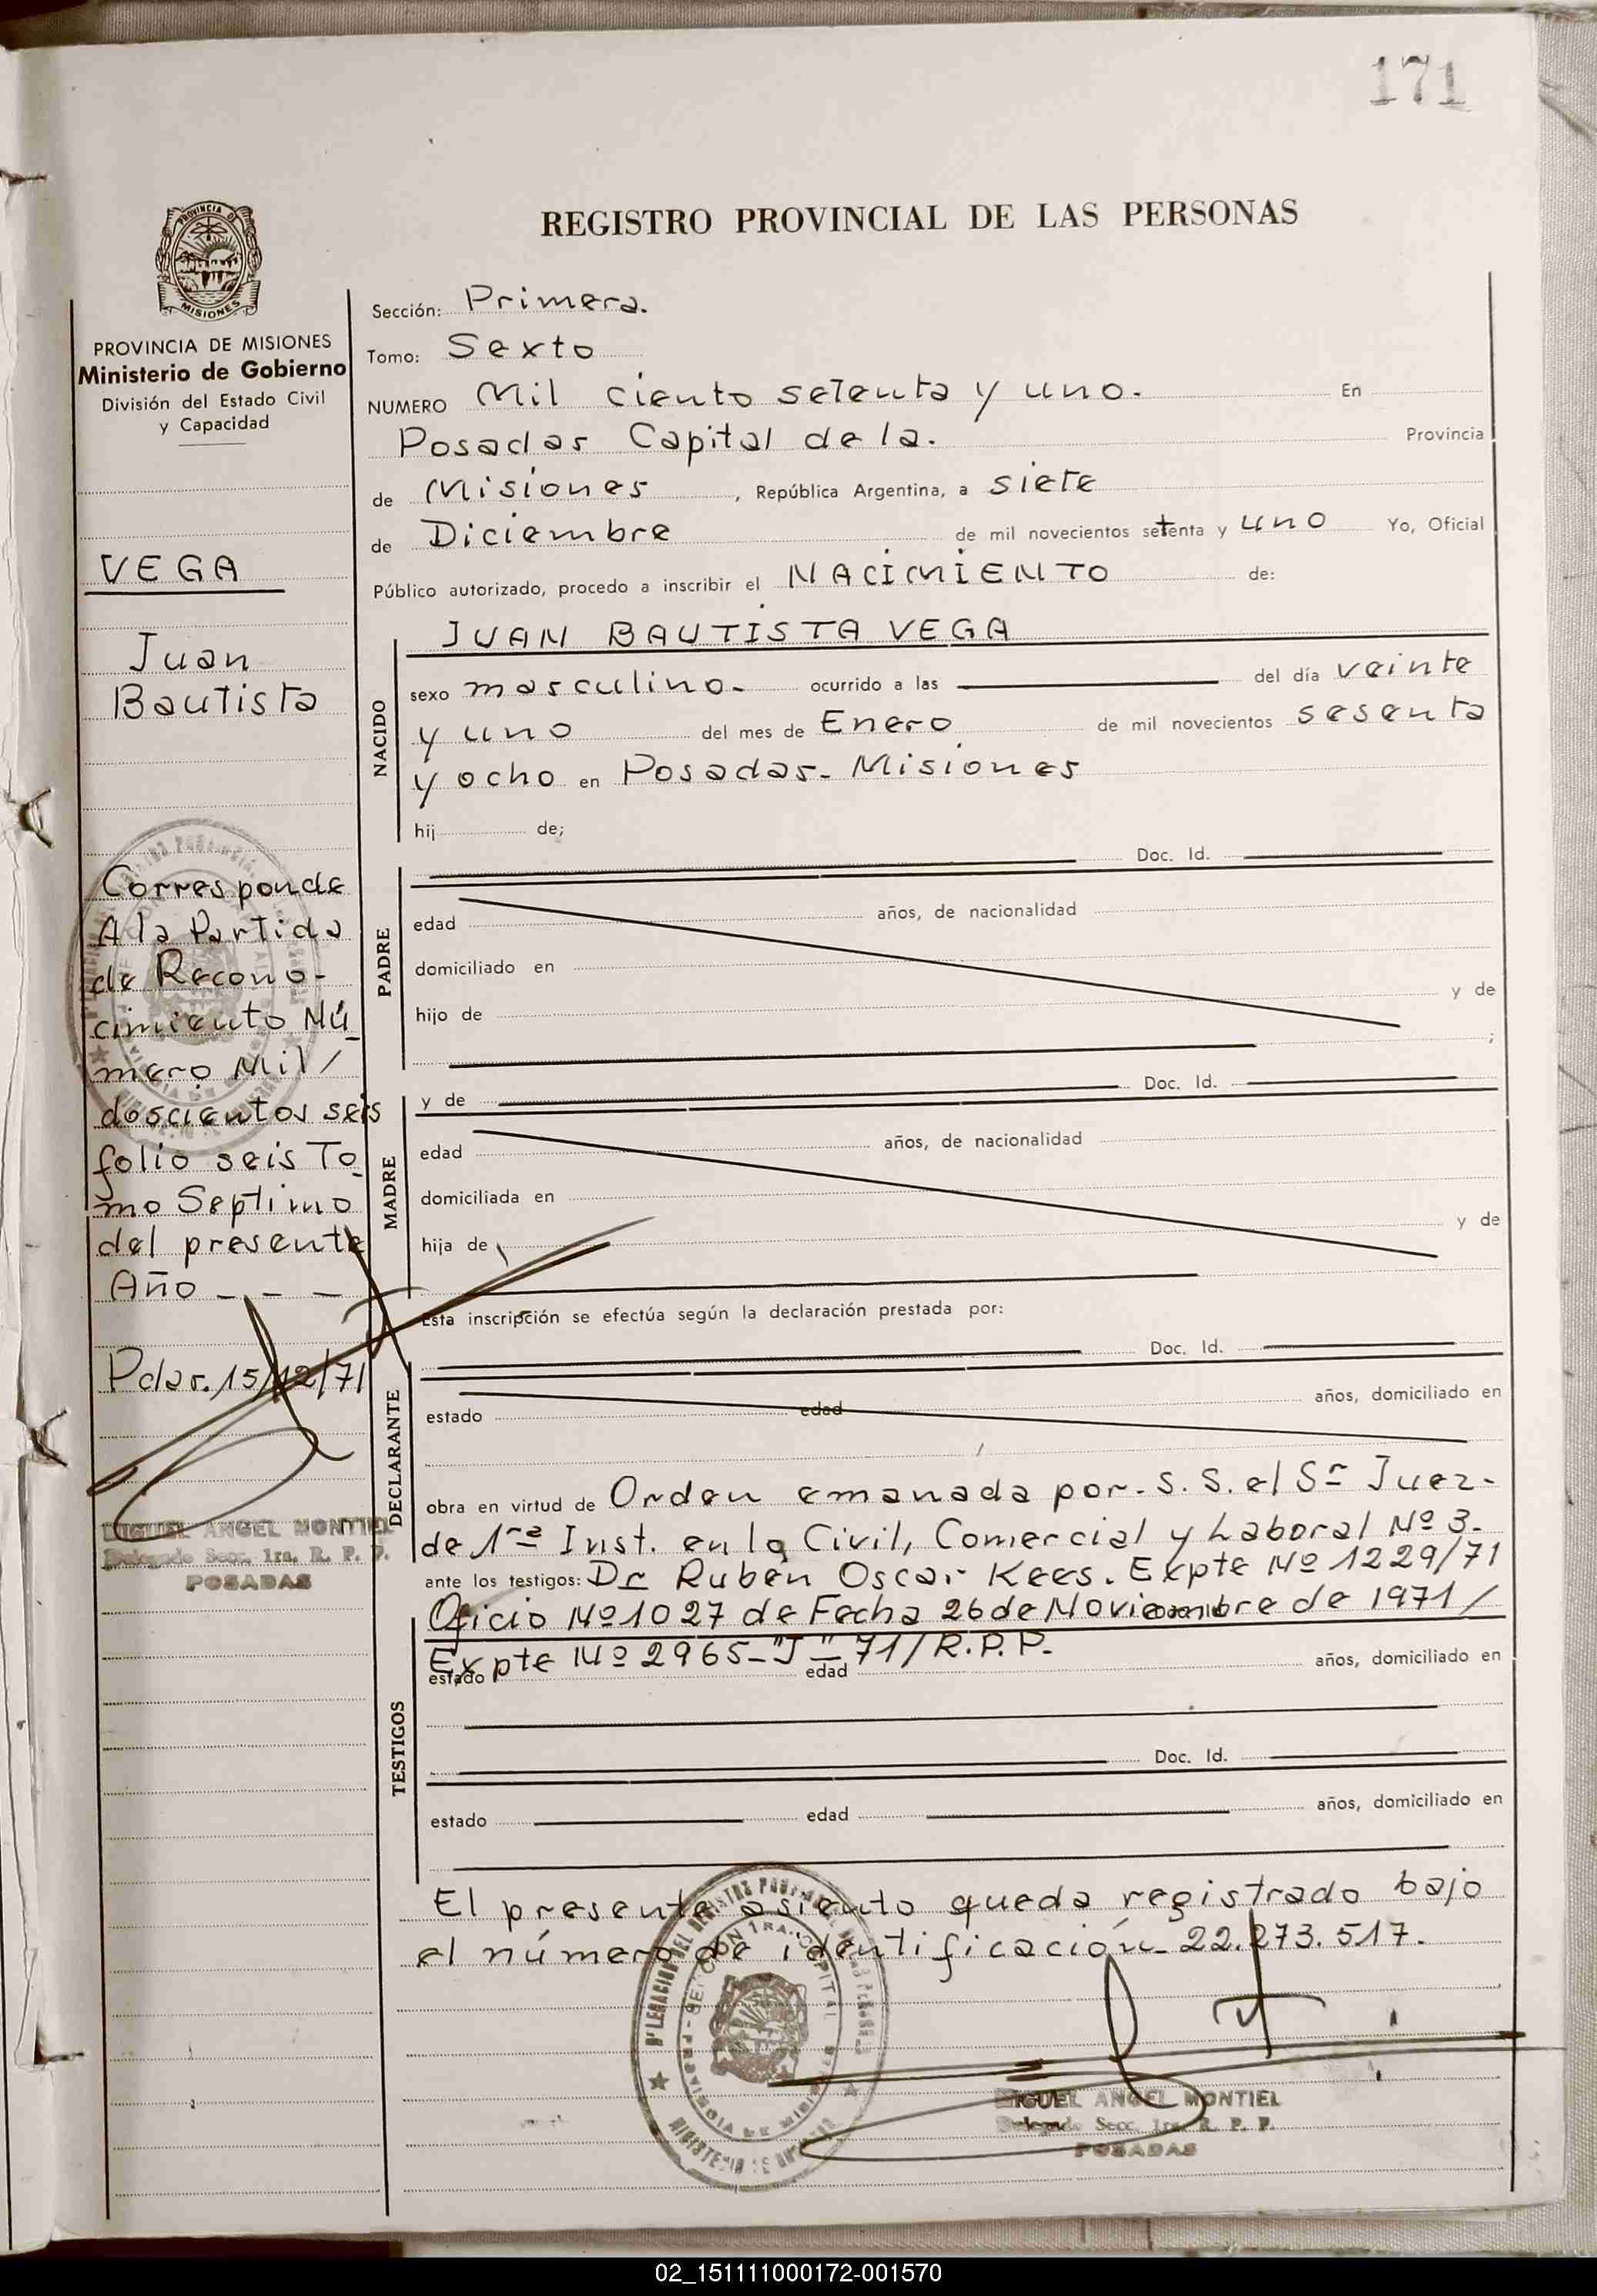 171
REGISTRO PROVINCIAL DE LAS PERSONAS
PROVINCIA DE
MISIONES
PROVINCIA DE MISIONES
Ministerio de Gobierno
División del Estado Civil
y Capacidad
VEGA
Juan
Bautista
Corresponde
A la Partida
de Recono-
cimiento Nú
mero Mil/
doscientos seis
folio seis To
mo Septimo
del presente
Año - - -
Pdas. 15/12/71
MIGUEL ANGEL MONTIEL
Delegado Secc. 1ra. R. P. P.
POSADAS
Sección: Primera.
Tomo: Sexto
NUMERO Mil ciento setenta y uno. En
Posadas Capital de la. Provincia
de Misiones, República Argentina, a siete
de Diciembre de mil novecientos setenta y uno Yo, Oficial
Público autorizado, procedo a inscribir el NACIMIENTO de:
JUAN BAUTISTA VEGA
NACIDO
sexo masculino. ocurrido a las del día veinte
y uno del mes de Enero de mil novecientos sesenta
y ocho en Posadas- Misiones
hij de;
Doc. Id.
PADRE
edad años, de nacionalidad
domiciliado en
hijo de y de
;
y de Doc. Id.
MADRE
edad años, de nacionalidad
domiciliada en
hija de y de
Esta inscripción se efectúa según la declaración prestada por:
Doc. Id.
DECLARANTE
estado edad años, domiciliado en
obra en virtud de Orden emanada por. S. S. el Sr Juez-
de 1ra Inst. en lo Civil, Comercial y Laboral Nº 3.
ante los testigos: Dr Ruben Oscar Kees. Expte Nº 1229/71
Oficio Nº 1027 de Fecha 26 de Noviembre de 1971/
Expte Nº 2965-"J"-71/R.P.P.
estado edad años, domiciliado en
TESTIGOS
Doc. Id.
estado edad años, domiciliado en
El presente asiento queda registrado bajo
el número de identificación- 22.273.517.
SECCION 1RA. CAPITAL
PROVINCIA DE MISIONES
MIGUEL ANGEL MONTIEL
Delegado Secc. 1ra. R. P. P.
POSADAS
02_151111000172-001570